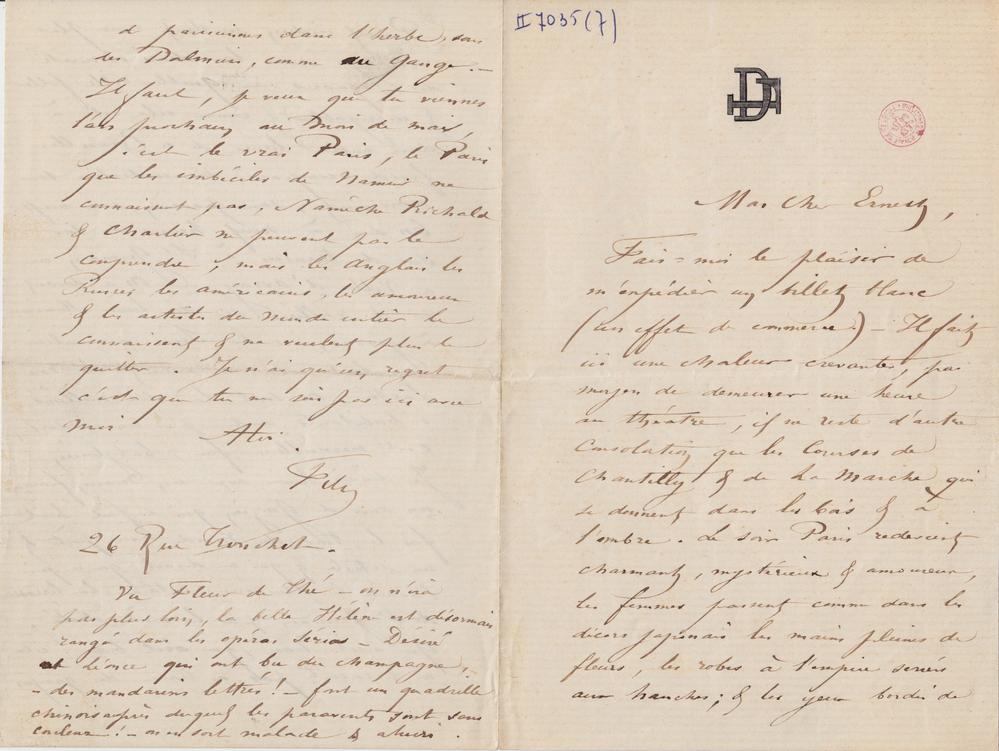 II 7035 (7)
Mon Cher Ernest,
Fais-moi le plaisir de
m'expédier un billet blanc
(un effet de commerce.) – Il fait
ici une chaleur crevante, pas
moyen de demeurer une heure
au théatre, il ne reste d'autre
Consolation que les Courses de
Chantilly & de La Marche qui
se donnent dans les bois & à
l'ombre. Le soir Paris redevient
charmant, mystérieux & amoureux,
les femmes passent comme dans les
décors japonais les mains pleines de
fleurs, les robes à l'empire serrées
aux hanches; & les yeux bordés de
d parisiennes dans l'herbe, sous
les Palmiers, comme au Gange. –
Il faut, je veux que tu viennes
l'an prochain au Mois de mai,
c'est le vrai Paris, le Paris
que les imbéciles de Namur ne
connaissent pas, Namêche Richald
& Charlier ne peuvent pas le
comprendre, mais les Anglais les
Russes les américains, les amoureux
& les artistes du Monde entier le
connaissent & ne veulent plus le
quitter. Je n'ai qu'un regret
c'est que tu ne sois pas ici avec
moi
à toi.
Fély
26 Rue Tronchet.
Vu Fleur de Thé – on n'ira
pas plus loin, la belle Hélène est désormais
rangé dans les opéras Serias – Désiré
et Léonce qui ont bu du champagne,
– des mandarins lettrés! – font un quadrille
chinois après duquel les paravents sont sans
couleur! – on en sort malade & ahuri.